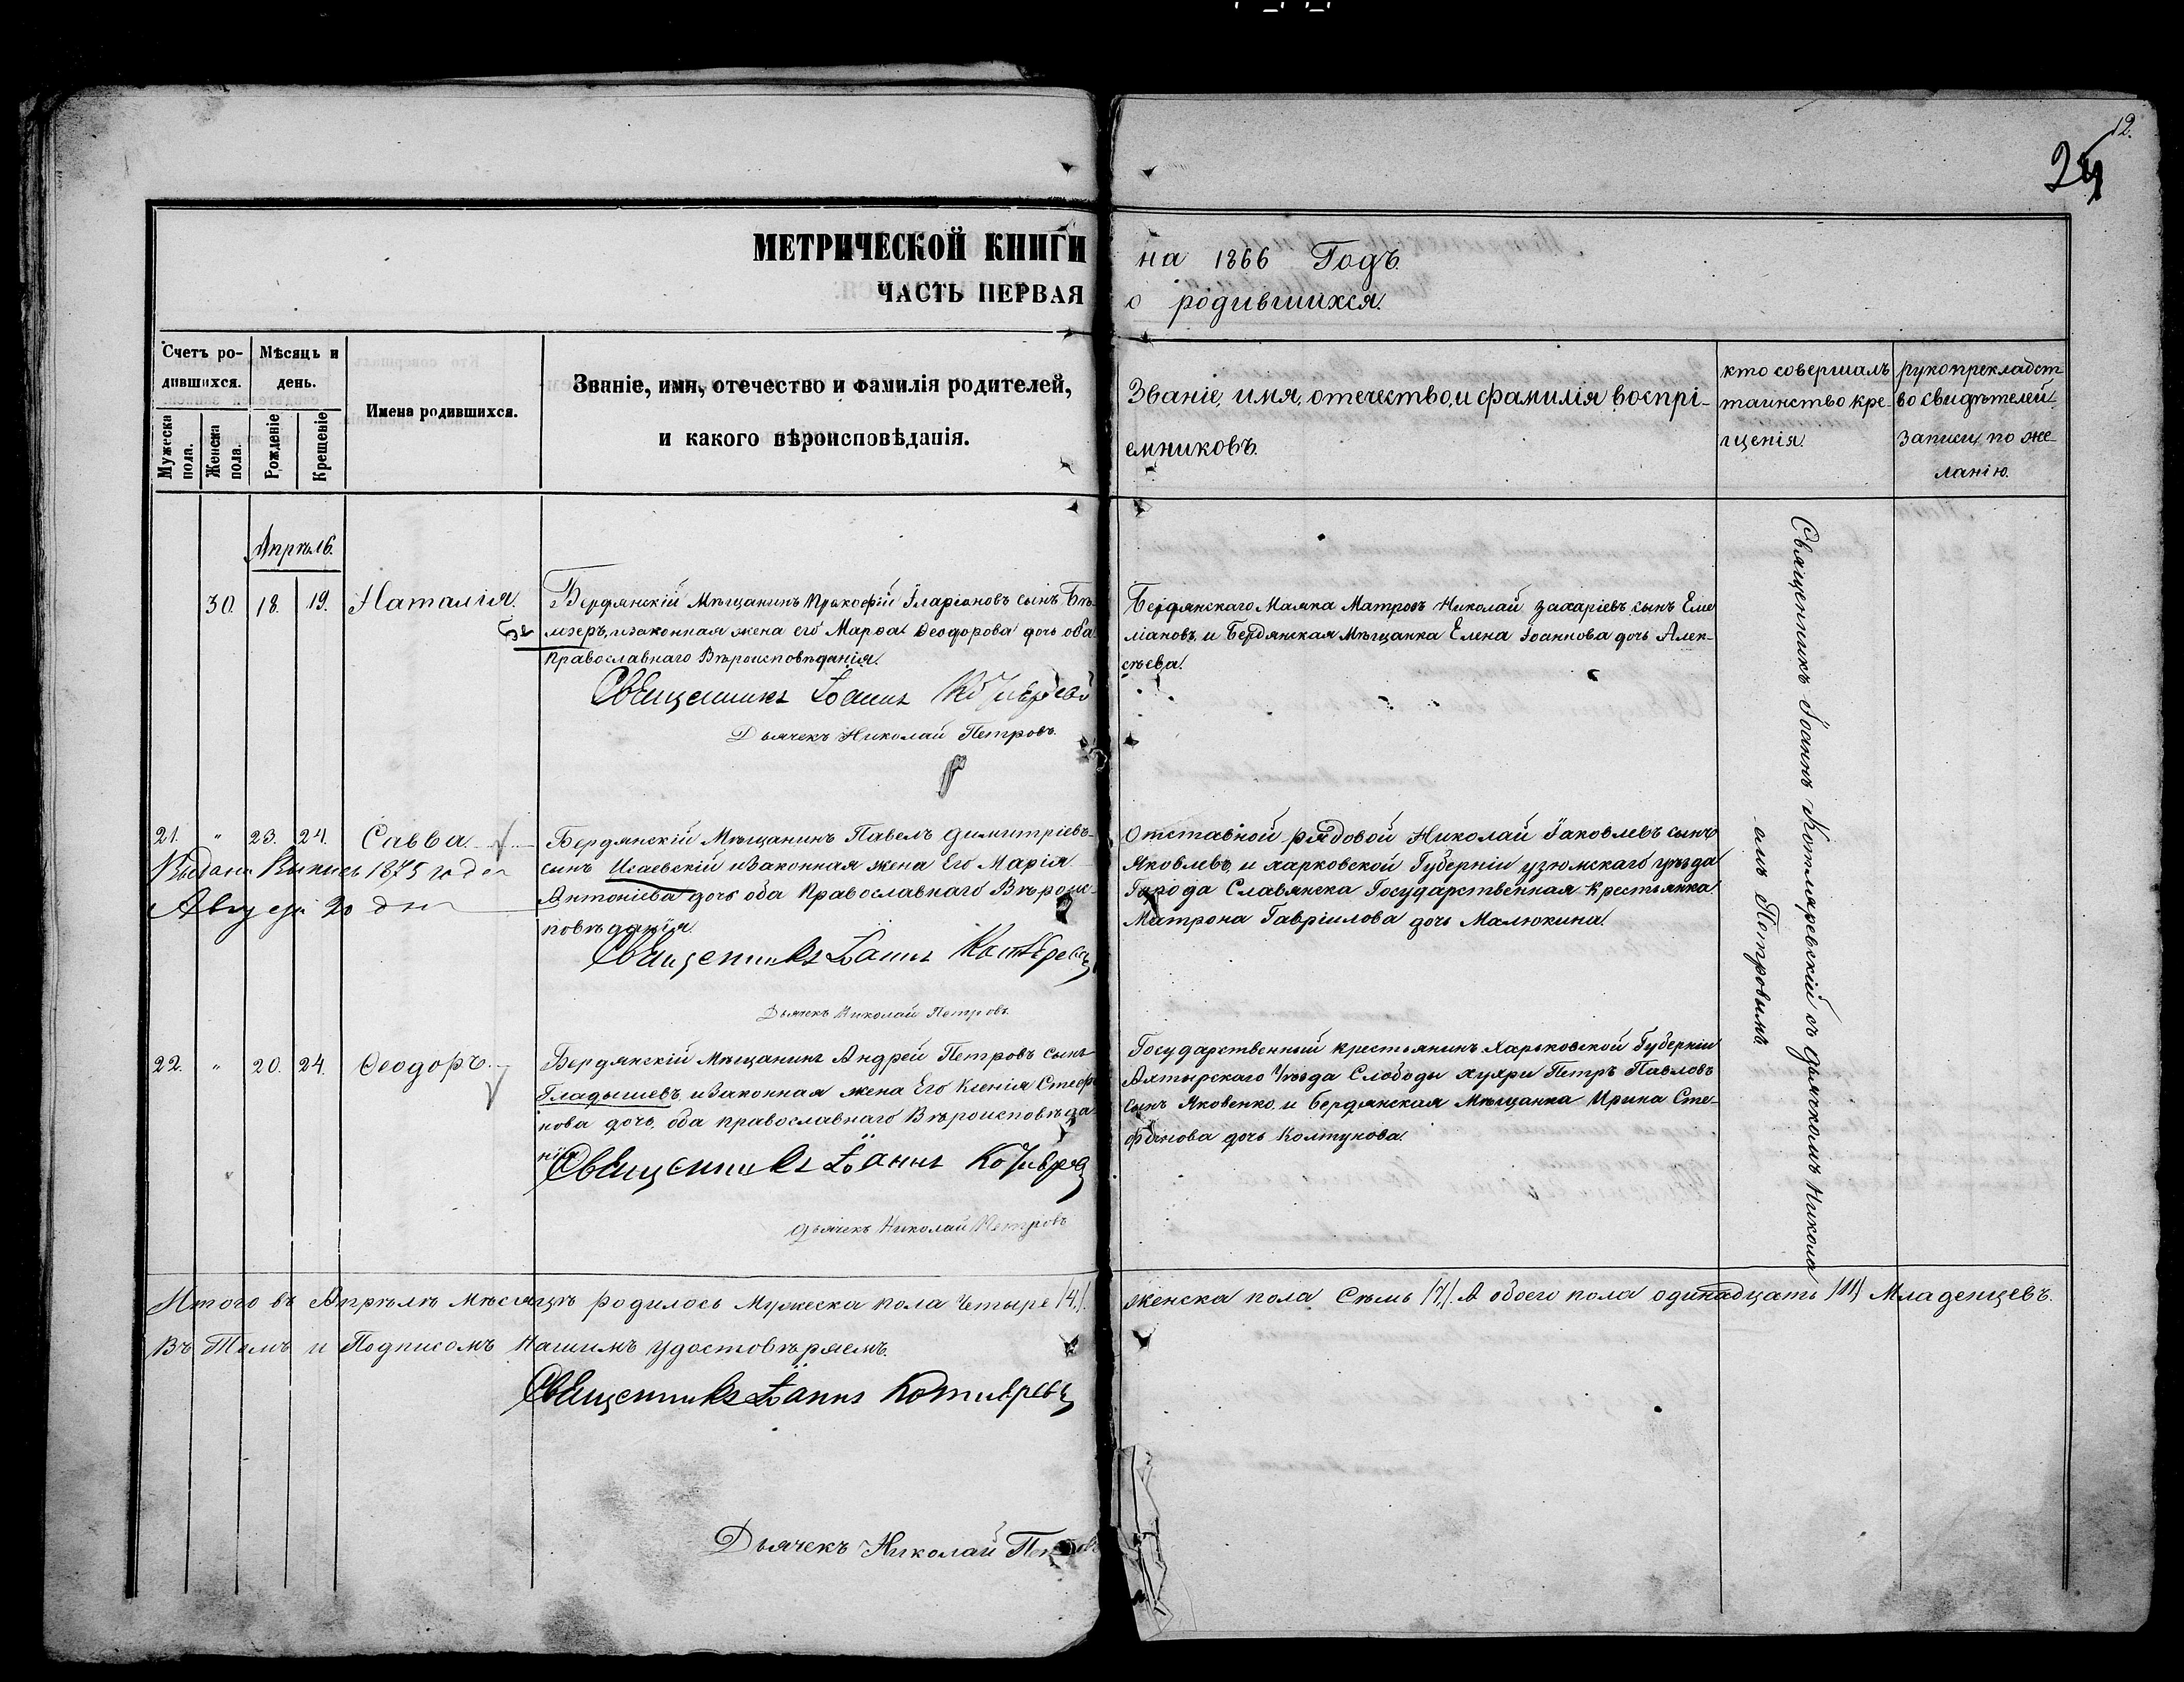 12.
24
МЕТРИЧЕСКОЙ КНИГИ на 1866 Годъ.
ЧАСТЬ ПЕРВАЯ о родившихся.
Счетъ ро-
дившихся.
Мѣсяцъ и
день.
Мужеска
пола.
Женска
пола.
Рожденіе
Крещеніе
Имена родившихся.
Званіе, имя, отечество и фамилія родителей,
и какого вѣроисповѣданія.
Званіе, имя, отечество, и фамилія воспрі-
емниковъ.
кто совершалъ
таинство кре-
щенія.
рукоприкладст
во свидѣтелей
записи по же-
ланію.
30. 18. 19. Наталія.
Бердянскій Мѣщанинъ Прокофій Іларіоновъ сынъ
и законная жена его Марѳа Ѳеодорова дочь оба
православнаго Вѣроисповѣданія.
Священникъ Іоаннъ
Дьячекъ Николай Петровъ.
Бердянскаго Маяка Матросъ Николай Захаріевъ сынъ Еме
ліановъ, и Бердянская Мѣщанка Елена Іоаннова дочь Алек-
сѣева.
21. " 23. 24. Савва.
Выдана Выпись 1875 года
20 дня
Бердянскій Мѣщанинъ Павелъ Димитріевъ
сынъ Исаевскій и Законная жена Его Марія
Антоніева дочь оба Православнаго Вѣроис-
повѣданія.
Священникъ Іоаннъ
Дьячекъ Николай Петровъ.
Отставной рядовой Николай Іаковлевъ сынъ
Яковлевъ, и харковской Губерніи узюмскаго уѣзда
Города Славянска Государственная Крестьянка
Матрона Гавріилова дочь Малюкина.
22. " 20. 24. Ѳеодоръ.
Бердянскій Мѣщанинъ Андрей Петровъ сынъ
Гладышевъ, и Законная жена Его Ксенія Стеф
нова дочь, оба православнаго Вѣроисповѣда
нія.
Священникъ Іоаннъ
Дьячекъ Николай Петровъ
Государственный крестьянинъ Харьковской Губерніи
Ахтырскаго Уѣзда Слободы Петръ Павловъ
сынъ Яковенко, и Бердянская Мѣщанка Ирина Сте-
фанова дочь Колтунова.
Священникъ Іоаннъ Котляревскій съ дьячкомъ Никола
емъ Петровымъ.
Итого въ Апрѣлѣ Мѣсяцѣ родилось Мужеска пола Четыре /4/. женска пола Семь /7/. А обоего пола одинадцать /11/ Младенцевъ.
Въ Томъ и Подписомъ Нашимъ удостовѣряемъ.
Священникъ Іоаннъ
Дьячекъ Николай